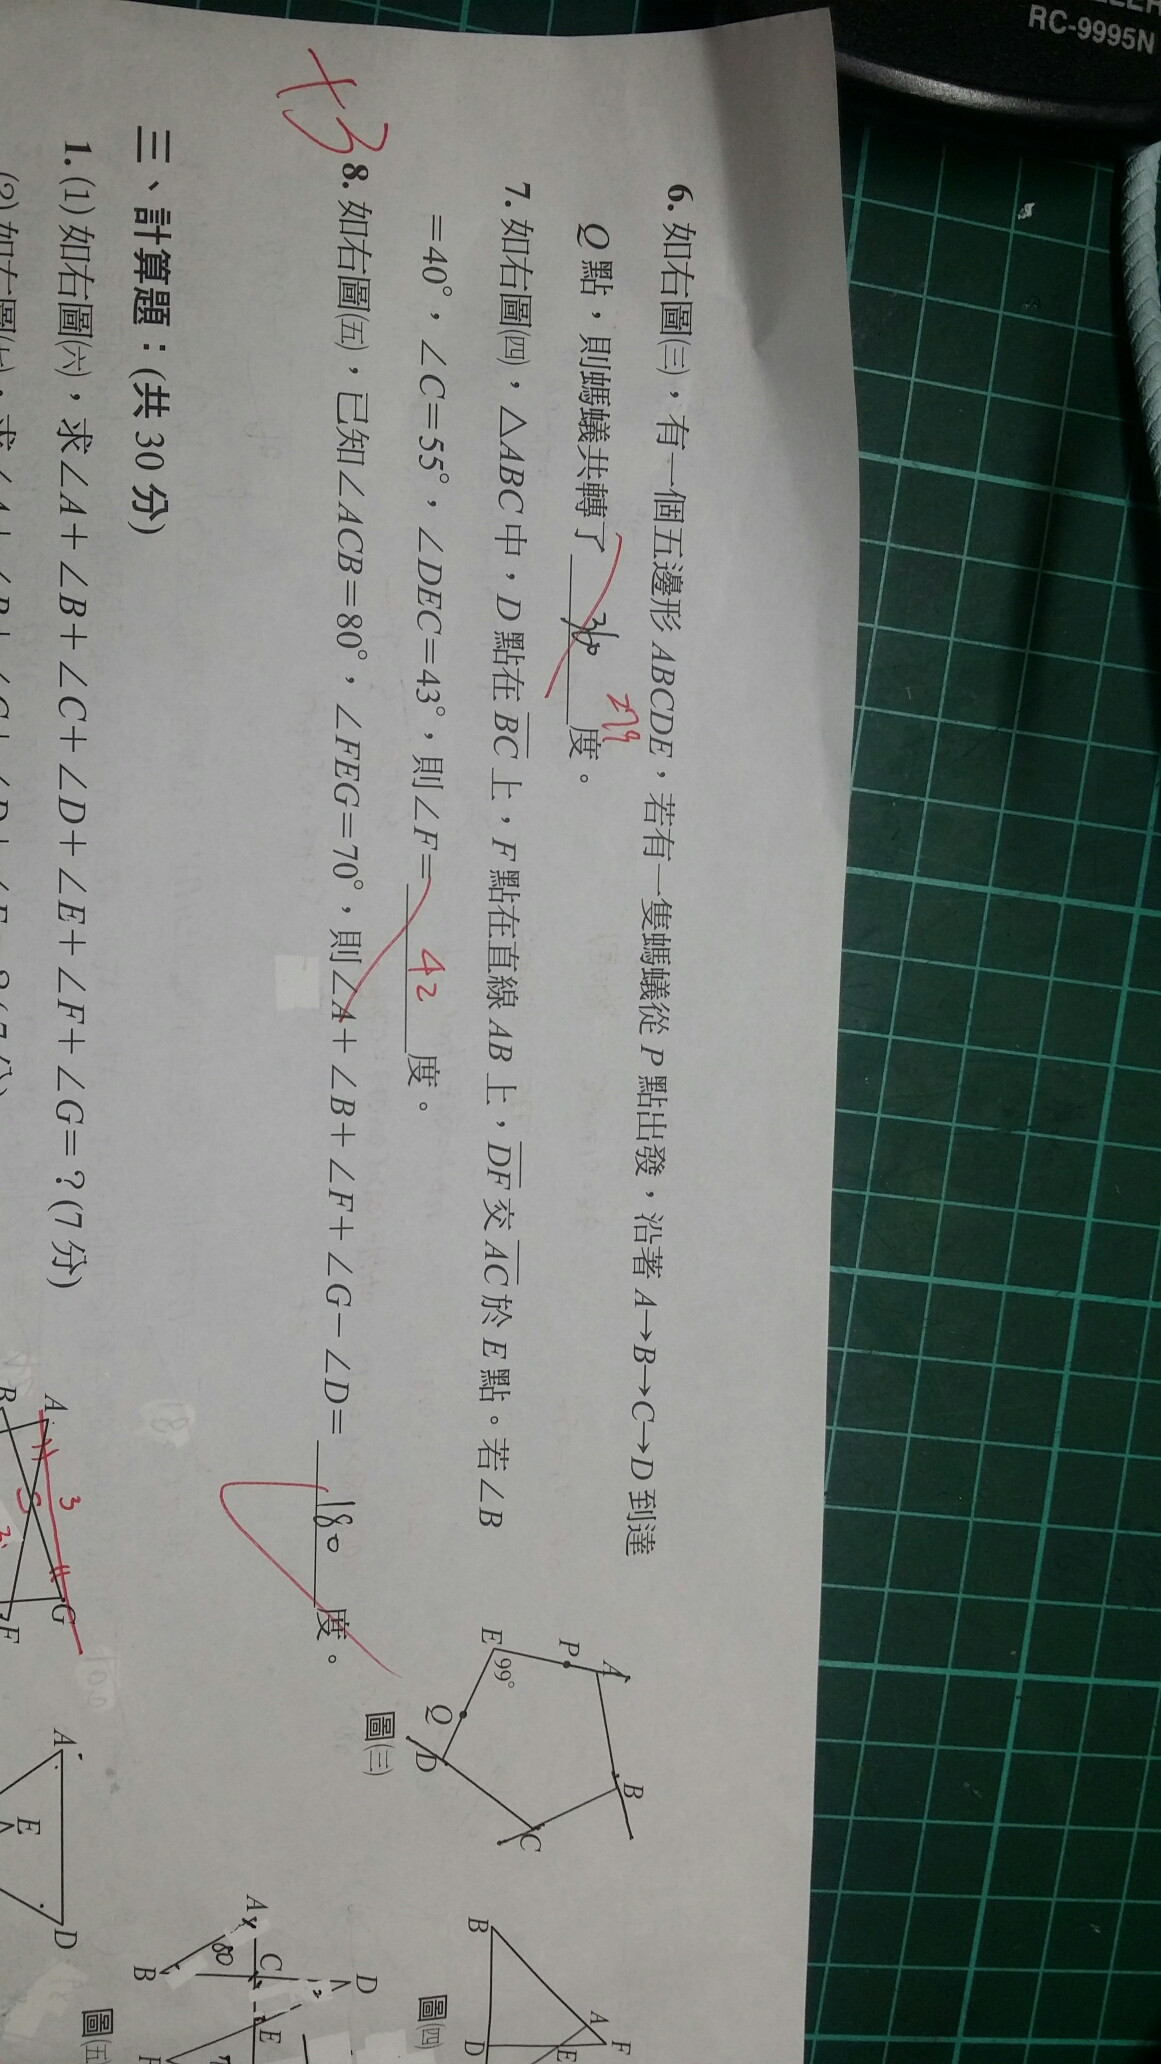 RC-9995N
6. 如右圖(三)，有一個五邊形 ABCDE，若有一隻螞蟻從 P 點出發，沿著 A→B→C→D 到達
Q 點，則螞蟻共轉了 360 279 度。
7. 如右圖(四)，△ABC 中，D 點在 BC 上，F 點在直線 AB 上，DF 交 AC 於 E 點。若∠B
=40°，∠C=55°，∠DEC=43°，則∠F= 42 度。
+3
8. 如右圖(五)，已知∠ACB=80°，∠FEG=70°，則∠A+∠B+∠F+∠G−∠D= 180 度。
三、計算題：(共 30 分)
1. (1) 如右圖(六)，求∠A+∠B+∠C+∠D+∠E+∠F+∠G=？(7 分)
(2) 如右圖(七)，求∠A+∠B+∠C+∠D+
E 99° P A B C D Q
圖(三)
B A F D E
圖(四)
A C D B 80 E
圖(五
A 3 G B 5 F
A D E